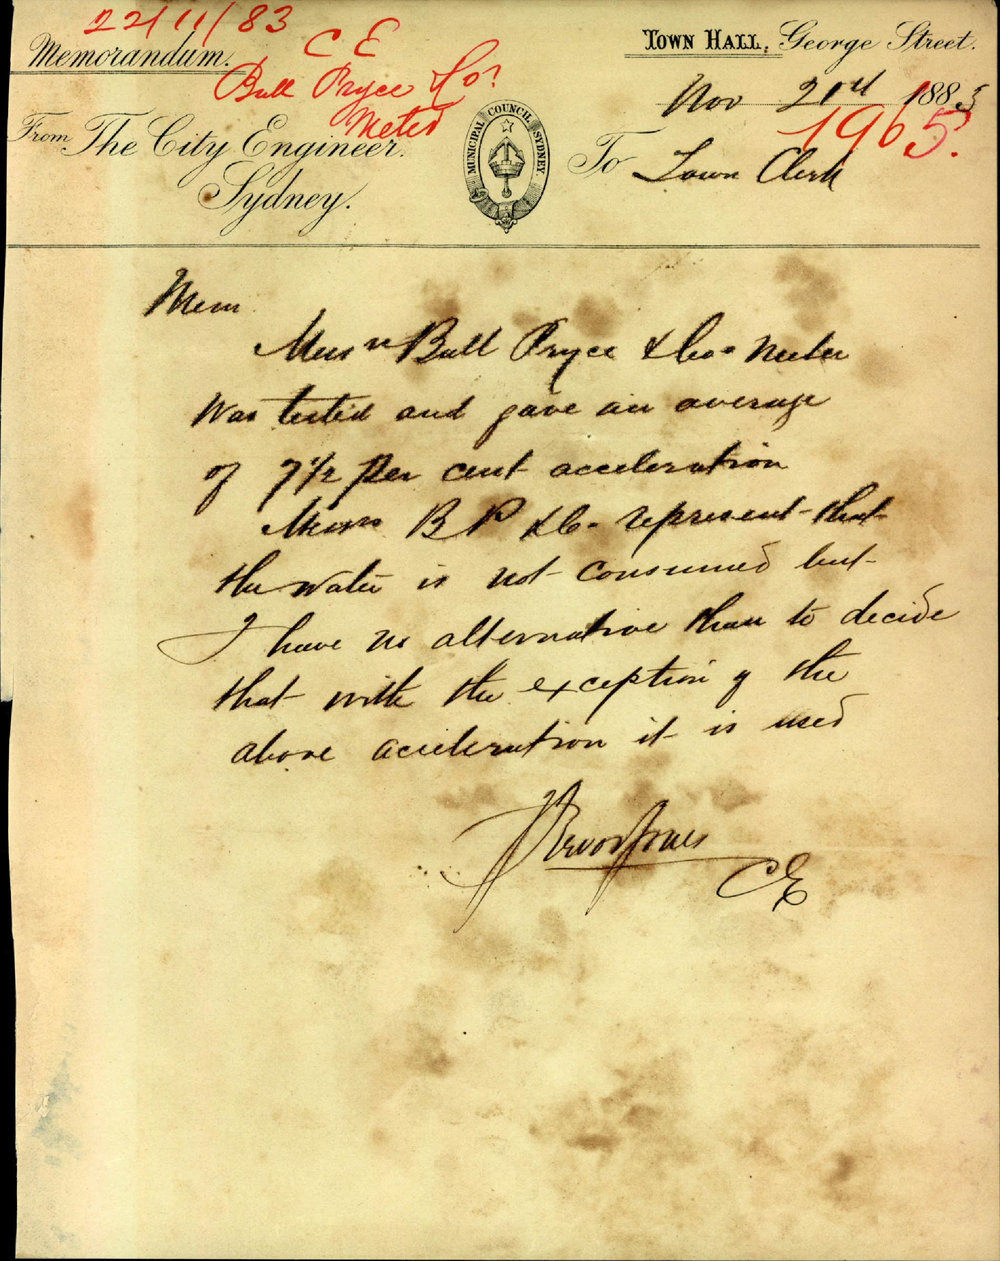 22/11/83
C E
Bull Pryce & Co?
Meter
Memorandum.
Town Hall, George Street.
Nov 21st 1883
1965.
From The City Engineer.
Sydney.
MUNICIPAL COUNCIL SYDNEY.
To Town Clerk
Mem
Messrs Bull Pryce & Co. Meter
Was tested and gave an average
of 7 1/2 per cent acceleration
Messrs B P & Co. represent that
the water is not consumed but
I have no alternative than to decide
that with the exception of the
above acceleration it is used
J Trevor Jones
C E